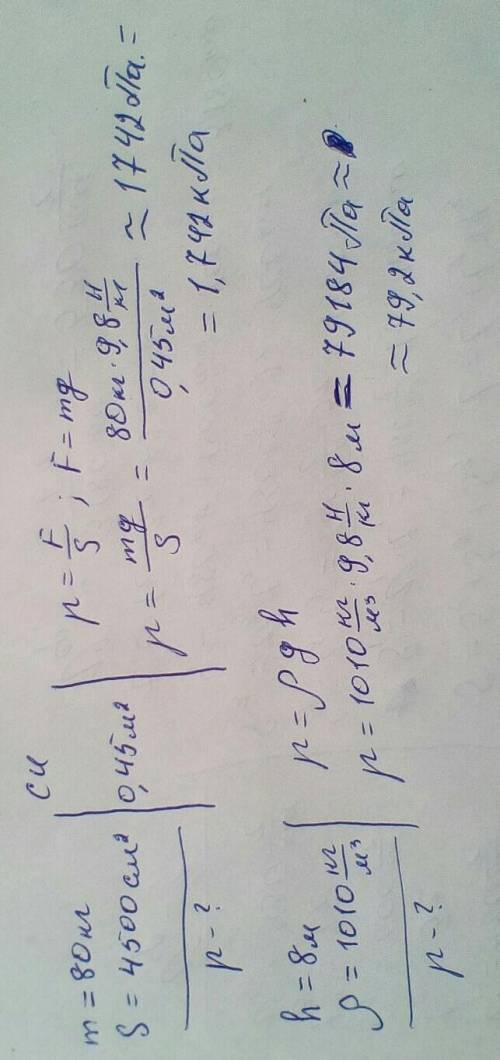 СИ
m = 80 кг
S = 4500 см² | 0,45 м²
p - ?
p = F/S ; F = mg
p = mg/S = 80 кг · 9,8 Н/кг / 0,45 м² ≈ 1742 Па =
= 1,742 кПа
h = 8 м
ρ = 1010 кг/м³
p - ?
p = ρ g h
p = 1010 кг/м³ · 9,8 Н/кг · 8 м = 79184 Па ≈
≈ 79,2 кПа